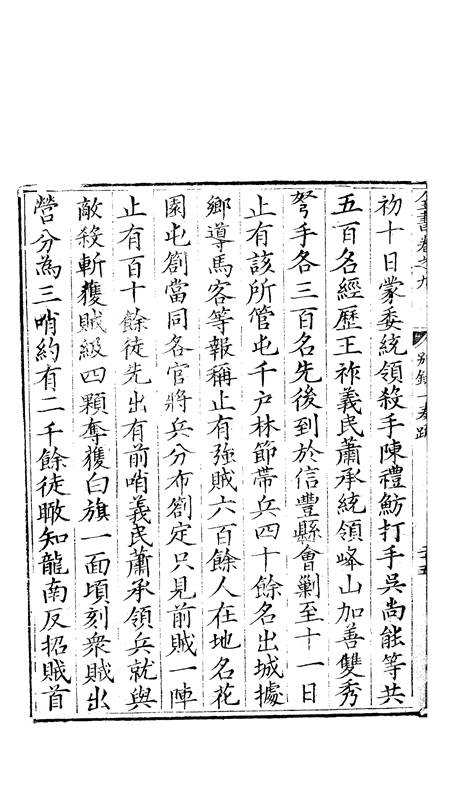 全書卷之九 別錄一奏疏 二十五
初十日蒙委統領殺手陳禮魴打手吳尚能等共
五百名經歷王祚義民蕭承統領峰山加善雙秀
弩手各三百名先後到於信豐縣會剿至十一日
止有該所管屯千戶林節帶兵四十餘名出城據
鄉導馬客等報稱止有強賊六百餘人在地名花
園屯劄當同各官將兵分布劄定只見前賊一陣
止有百十餘徒先出有前哨義民蕭承領兵就與
敵殺斬獲賊級四顆奪獲白旗一面頃刻衆賊出
營分為三哨約有二千餘徒瞰知龍南反招賊首